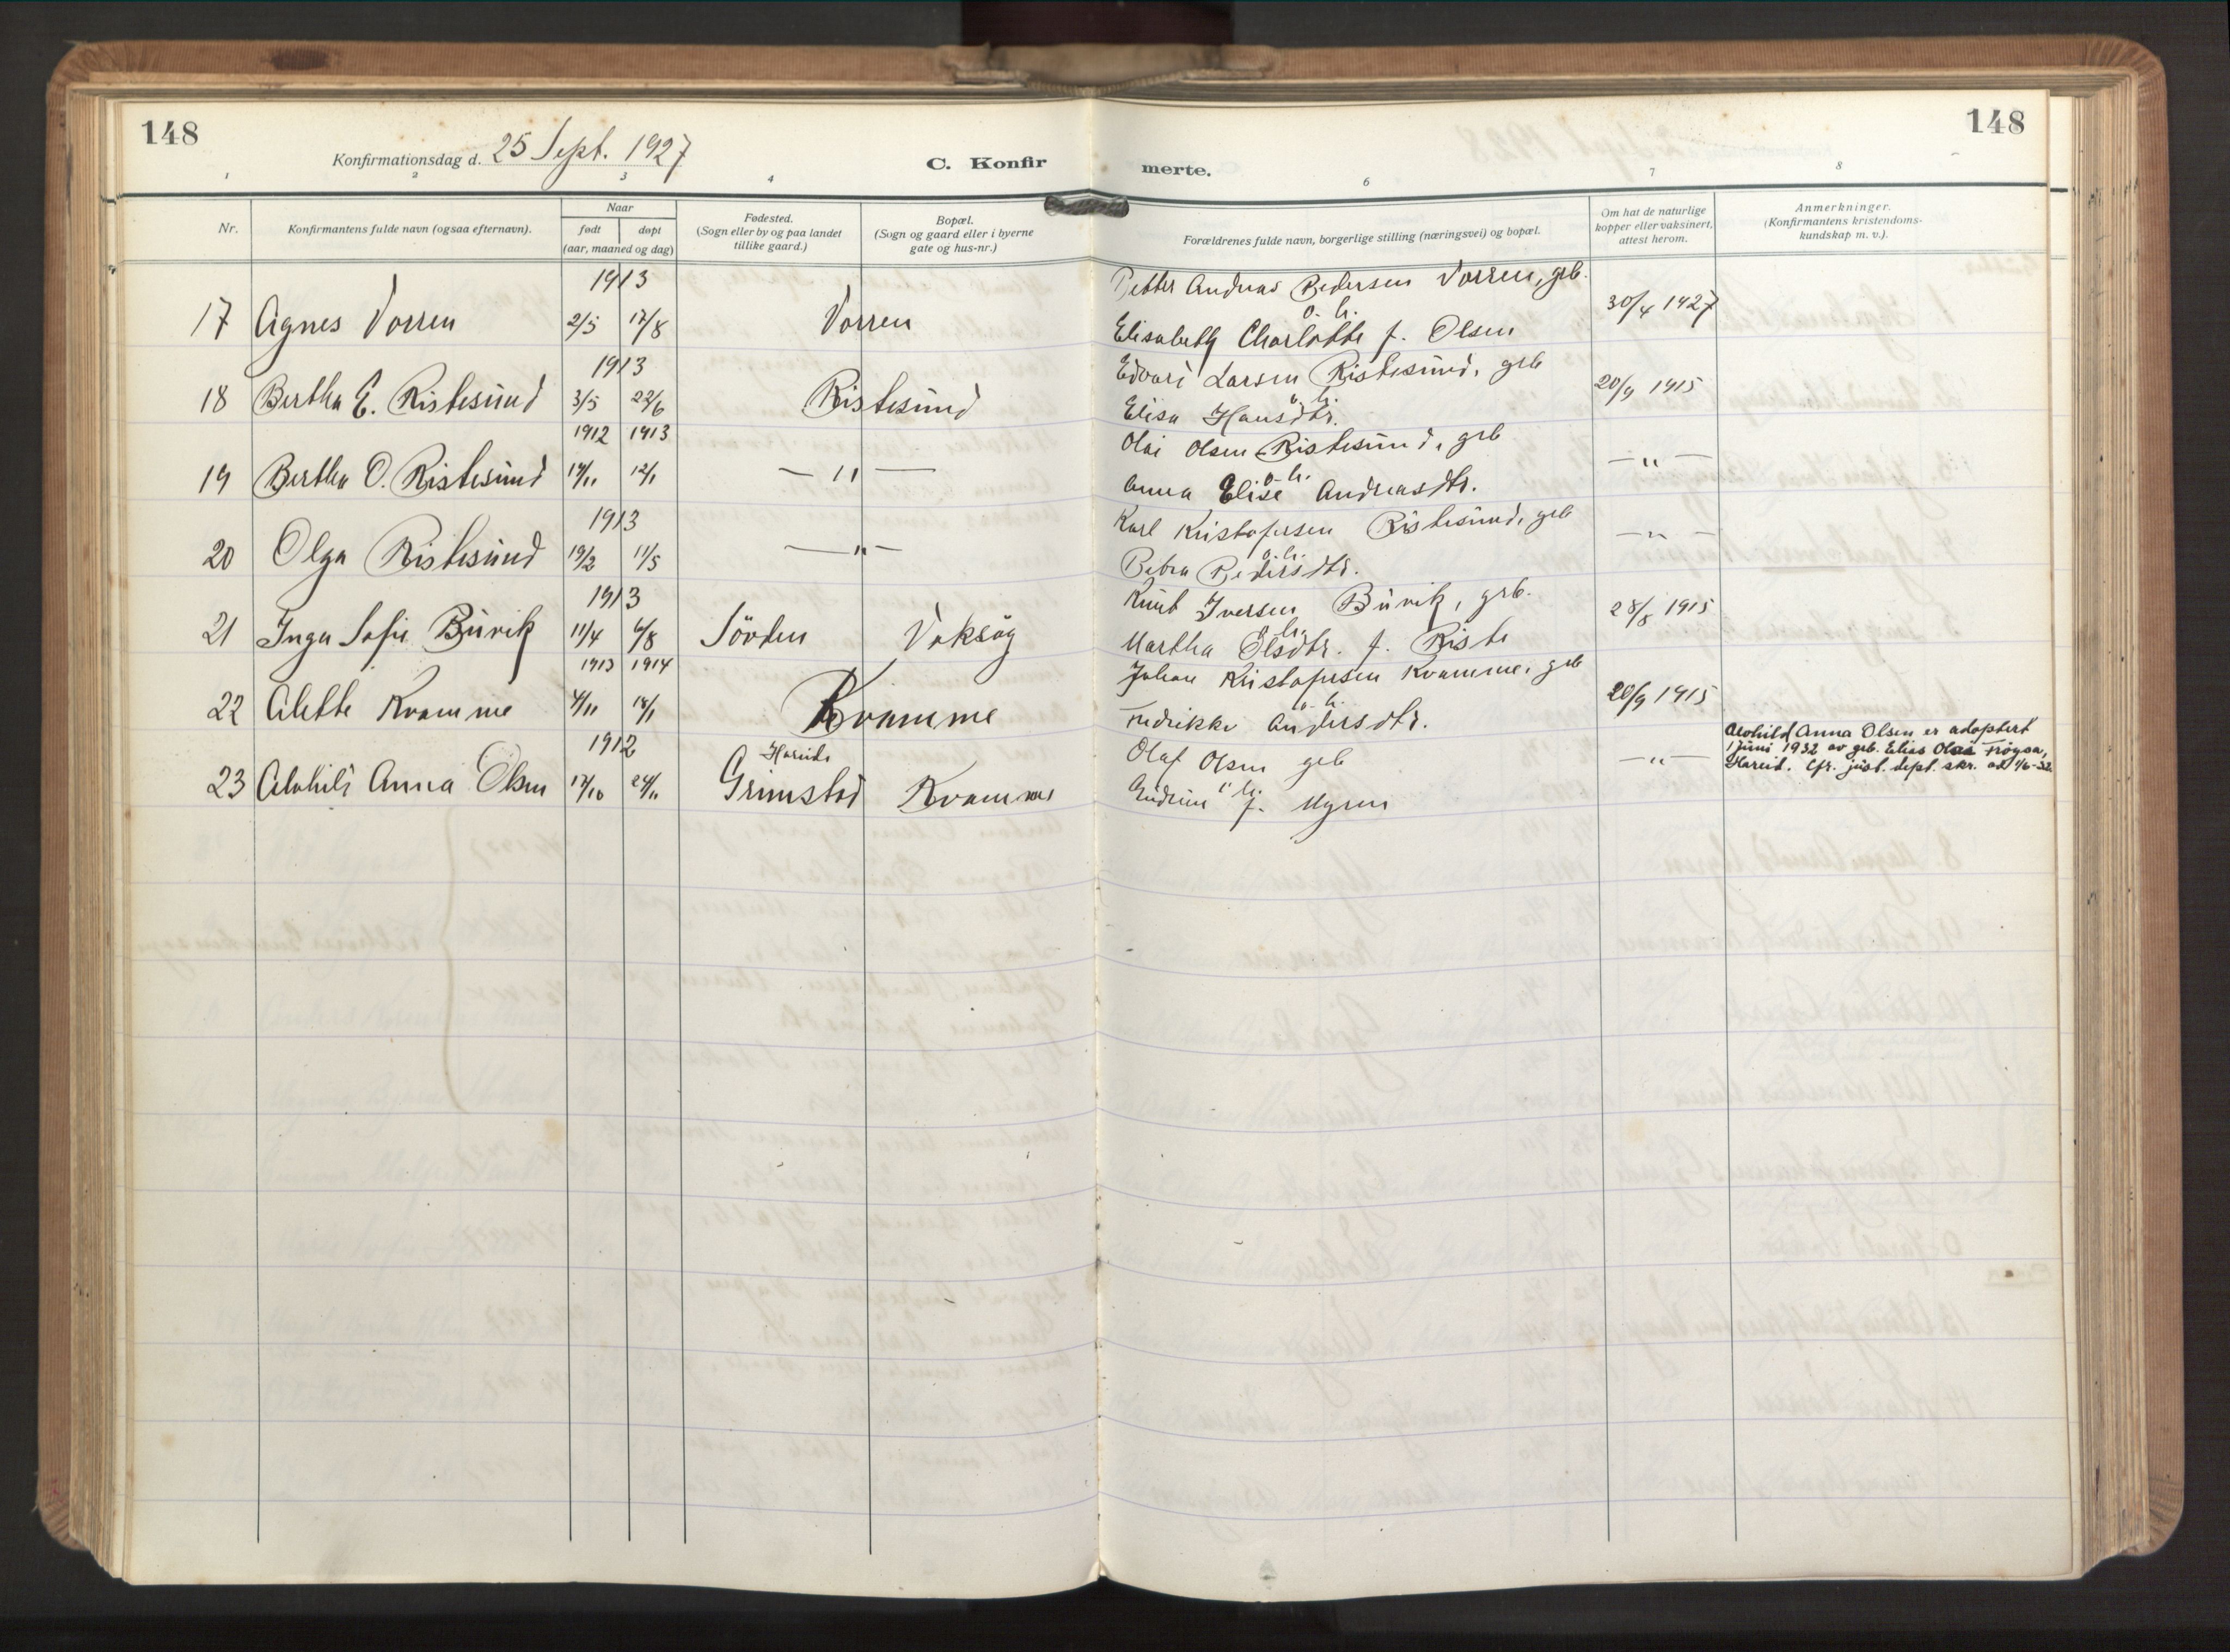 148
148
Konfirmationsdag d. 25 Sept. 1927
C. Konfir merte.
1 2 3 4 6 7 8
Nr.
Konfirmantens fulde navn (ogsaa efternavn).
Naar
født døpt
(aar, maaned og dag)
Fødested.
(Sogn eller by og paa landet
tillike gaard.)
Bopæl.
(Sogn og gaard eller i byerne
gate og hus-nr.)
Forældrenes fulde navn, borgerlige stilling (næringsvei) og bopæl.
Om hat de naturlige
kopper eller vaksinert,
attest herom.
Anmerkninger.
(Konfirmantens kristendoms-
kundskap m. v.).
1913
Petter Andreas Pedersen Vorren, grb.
17 Agnes Vorren 2/5 17/8 Vorren
o. h.
Elisabeth Charlotte f. Olsen
30/4 1927
1913
Edvard Larsen Ristesund, grb
18 Bertha E. Ristesund 3/5 22/6 Ristesund
o. h.
Elisa Hansdtr.
20/9 1915
1912 1913
Olai Olsen Ristesund, grb
19 Bertha O. Ristesund 14/11 12/1 — " —
o. h.
Anna Elise Andreasdtr.
— " —
1913
Karl Kristofersen Ristesund, grb
20 Olga Ristesund 19/2 11/5 — " —
o. h.
Petra Pedersdtr.
— " —
1913
Knut Iversen Burik, grb.
21 Inga Sofie Burik 11/4 6/8 Sörten Voksöy
o. h.
Martha Olsdtr. f. Riste
28/8 1915
1913 1914
Johan Kristofersen Kvamme, grb
22 Alette Kvamme 4/11 18/1 Kvamme
o. h.
Fredrikke Andersdtr.
20/9 1915
1912
Hareide
Olaf Olsen grb
23 Alvhild Anna Olsen 17/10 24/11 Grimstad Kvamme
o. h.
f. Myren
— " —
Alvhild Anna Olsen er adoptert
1 juni 1932 av grb. Elias Olai Röysa,
Hareid. Cfr. just. dept. skr. av 1/6-32.